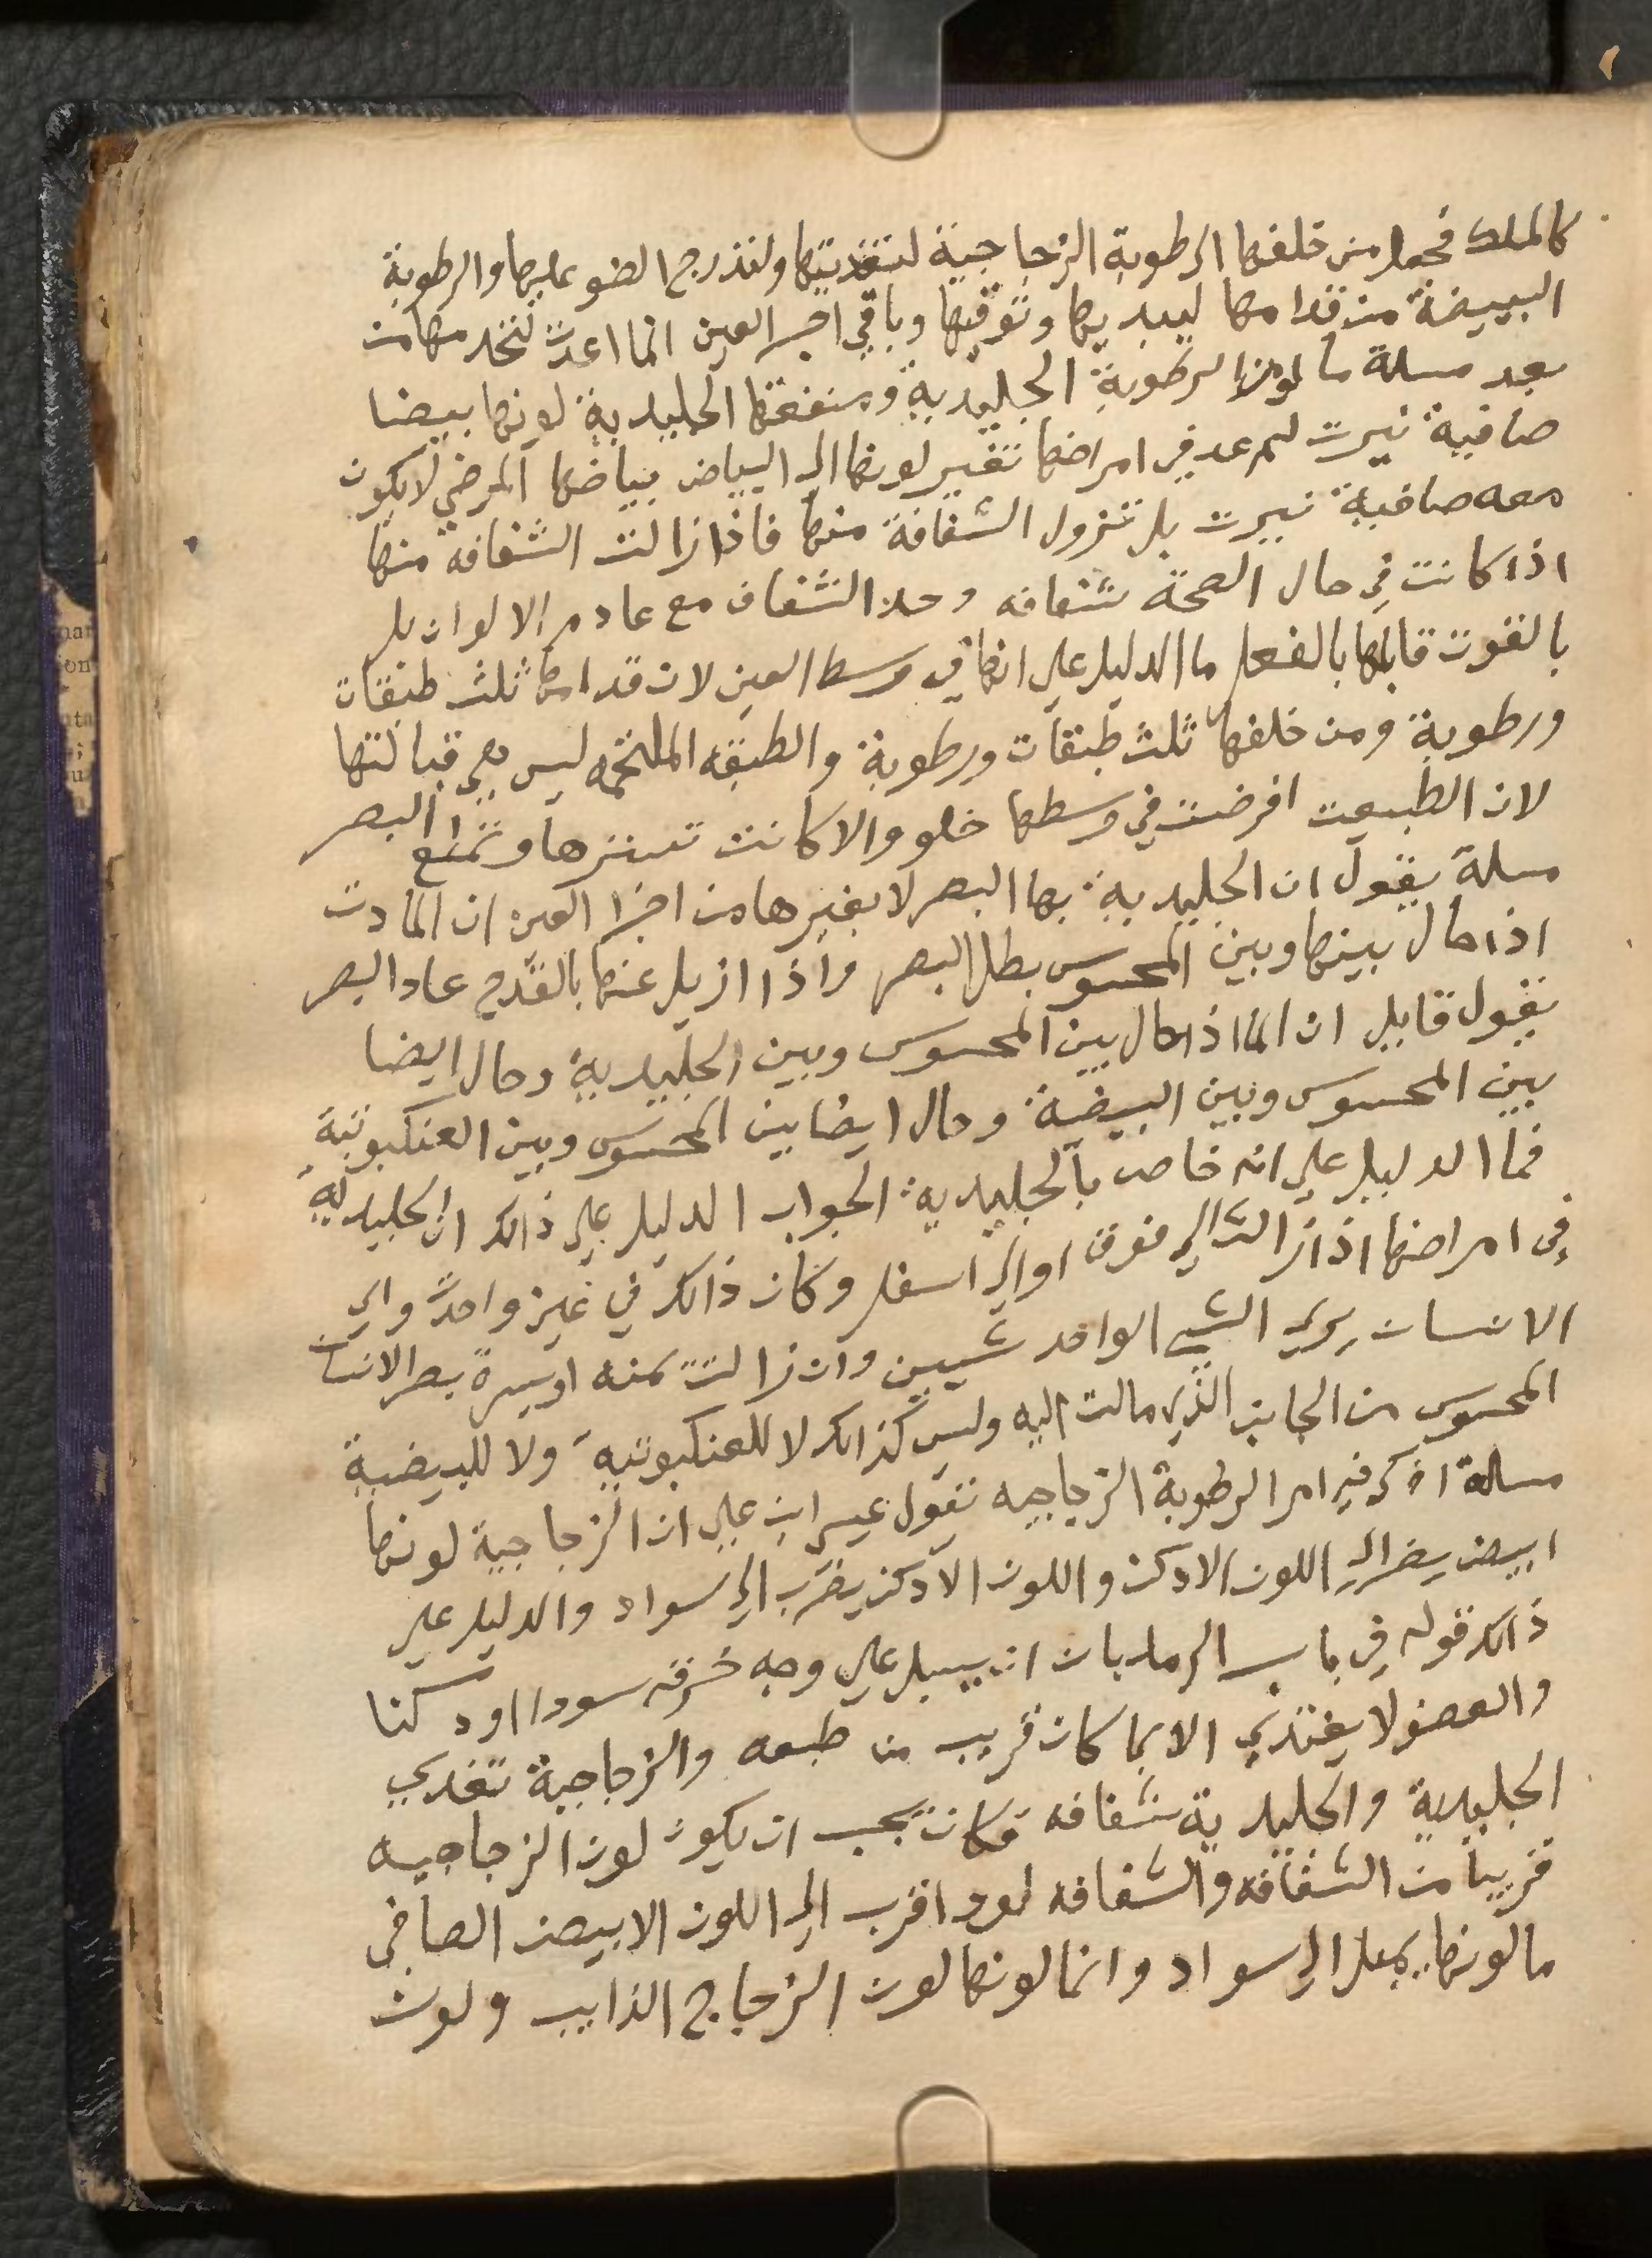 كالملك فجعل من خلفها الرطوبة الزجاجية لتغديتها ولتدرج الضو عليها والرطوبة
البيضية من قدامها ليبديها وتوقيها وباقي اجزا العين انما اعدت لتخدمها من
بعد مسلة ما لون الرطوبة الجليدية ومنفعتها الجليدية لونها بيضا
صافية نيرت لم عد في امراضها تغير لونها الى البياض بياضها المرضي لا يكون
معه صافية نيرت بل تزول الشفافة منها فاذا زالت الشفافه منها
اذا كانت في حال الصحة شفافه وحد الشفاف مع عادم الالوان بل
بالقوت قابلها بالفعل ما الدليل علي انها في وسط العين لان قدامها ثلث طبقات
ورطوبة ومن خلفها ثلث طبقات ورطوبة والطبقه الملتحمه ليس هي قبالتها
لان الطبيعت افرضت في وسطها خلو والا كانت تسترها وتمنع البصر
مسلة يقول ان الجليدية بها البصر لا بغيرها من اجزا العين ان المادت
اذا حال بينها وبين المحسوس بطل البصر واذا ازيل عنها بالقدح عاد البصر
يقول قايل ان الما اذا حال بين المحسوس وبين الجليدية وحال ايضا
بين المحسوس وبين البيضية وحال ايضا بين المحسوس وبين العنكبوتية
فما الدليل علي انه خاص بالجليدية الجواب الدليل علي ذالك ان الجليدية
في امراضها اذا زالت الي فوق او الي اسفل وكان ذالك في عين واحدة راي
الانسان يري الشي الواحد شيين وان زالت يمنه او يسرة بصر الانسان
المحسوس من الجانب الذي مالت اليه وليس كذالك لا للعنكبوتيه ولا للبيضية
مسلة اذكر فيه امر الرطوبة الزجاجيه تقول عيسى ابن علي ان الزجاجية لونها
ابيض يضر الى اللون الادكن واللون الادكن يضرب الي سواد والدليل علي
ذالك قوله في باب الرمد بان ان يسبل علي وجه خرقه سودا او دكنا
والعضو لا يغتذي الا بما كان قريب من طبعه والزجاجية تغدي
الجليدية والجليدية شفافه فكان يجب ان يكون لون الزجاجيه
قريبا من الشفافه والشفافه لهو اقرب الى اللون الابيض الصافي
ما لونها يميل الي سواد وانما لونها لون الزجاج الذايب ولون